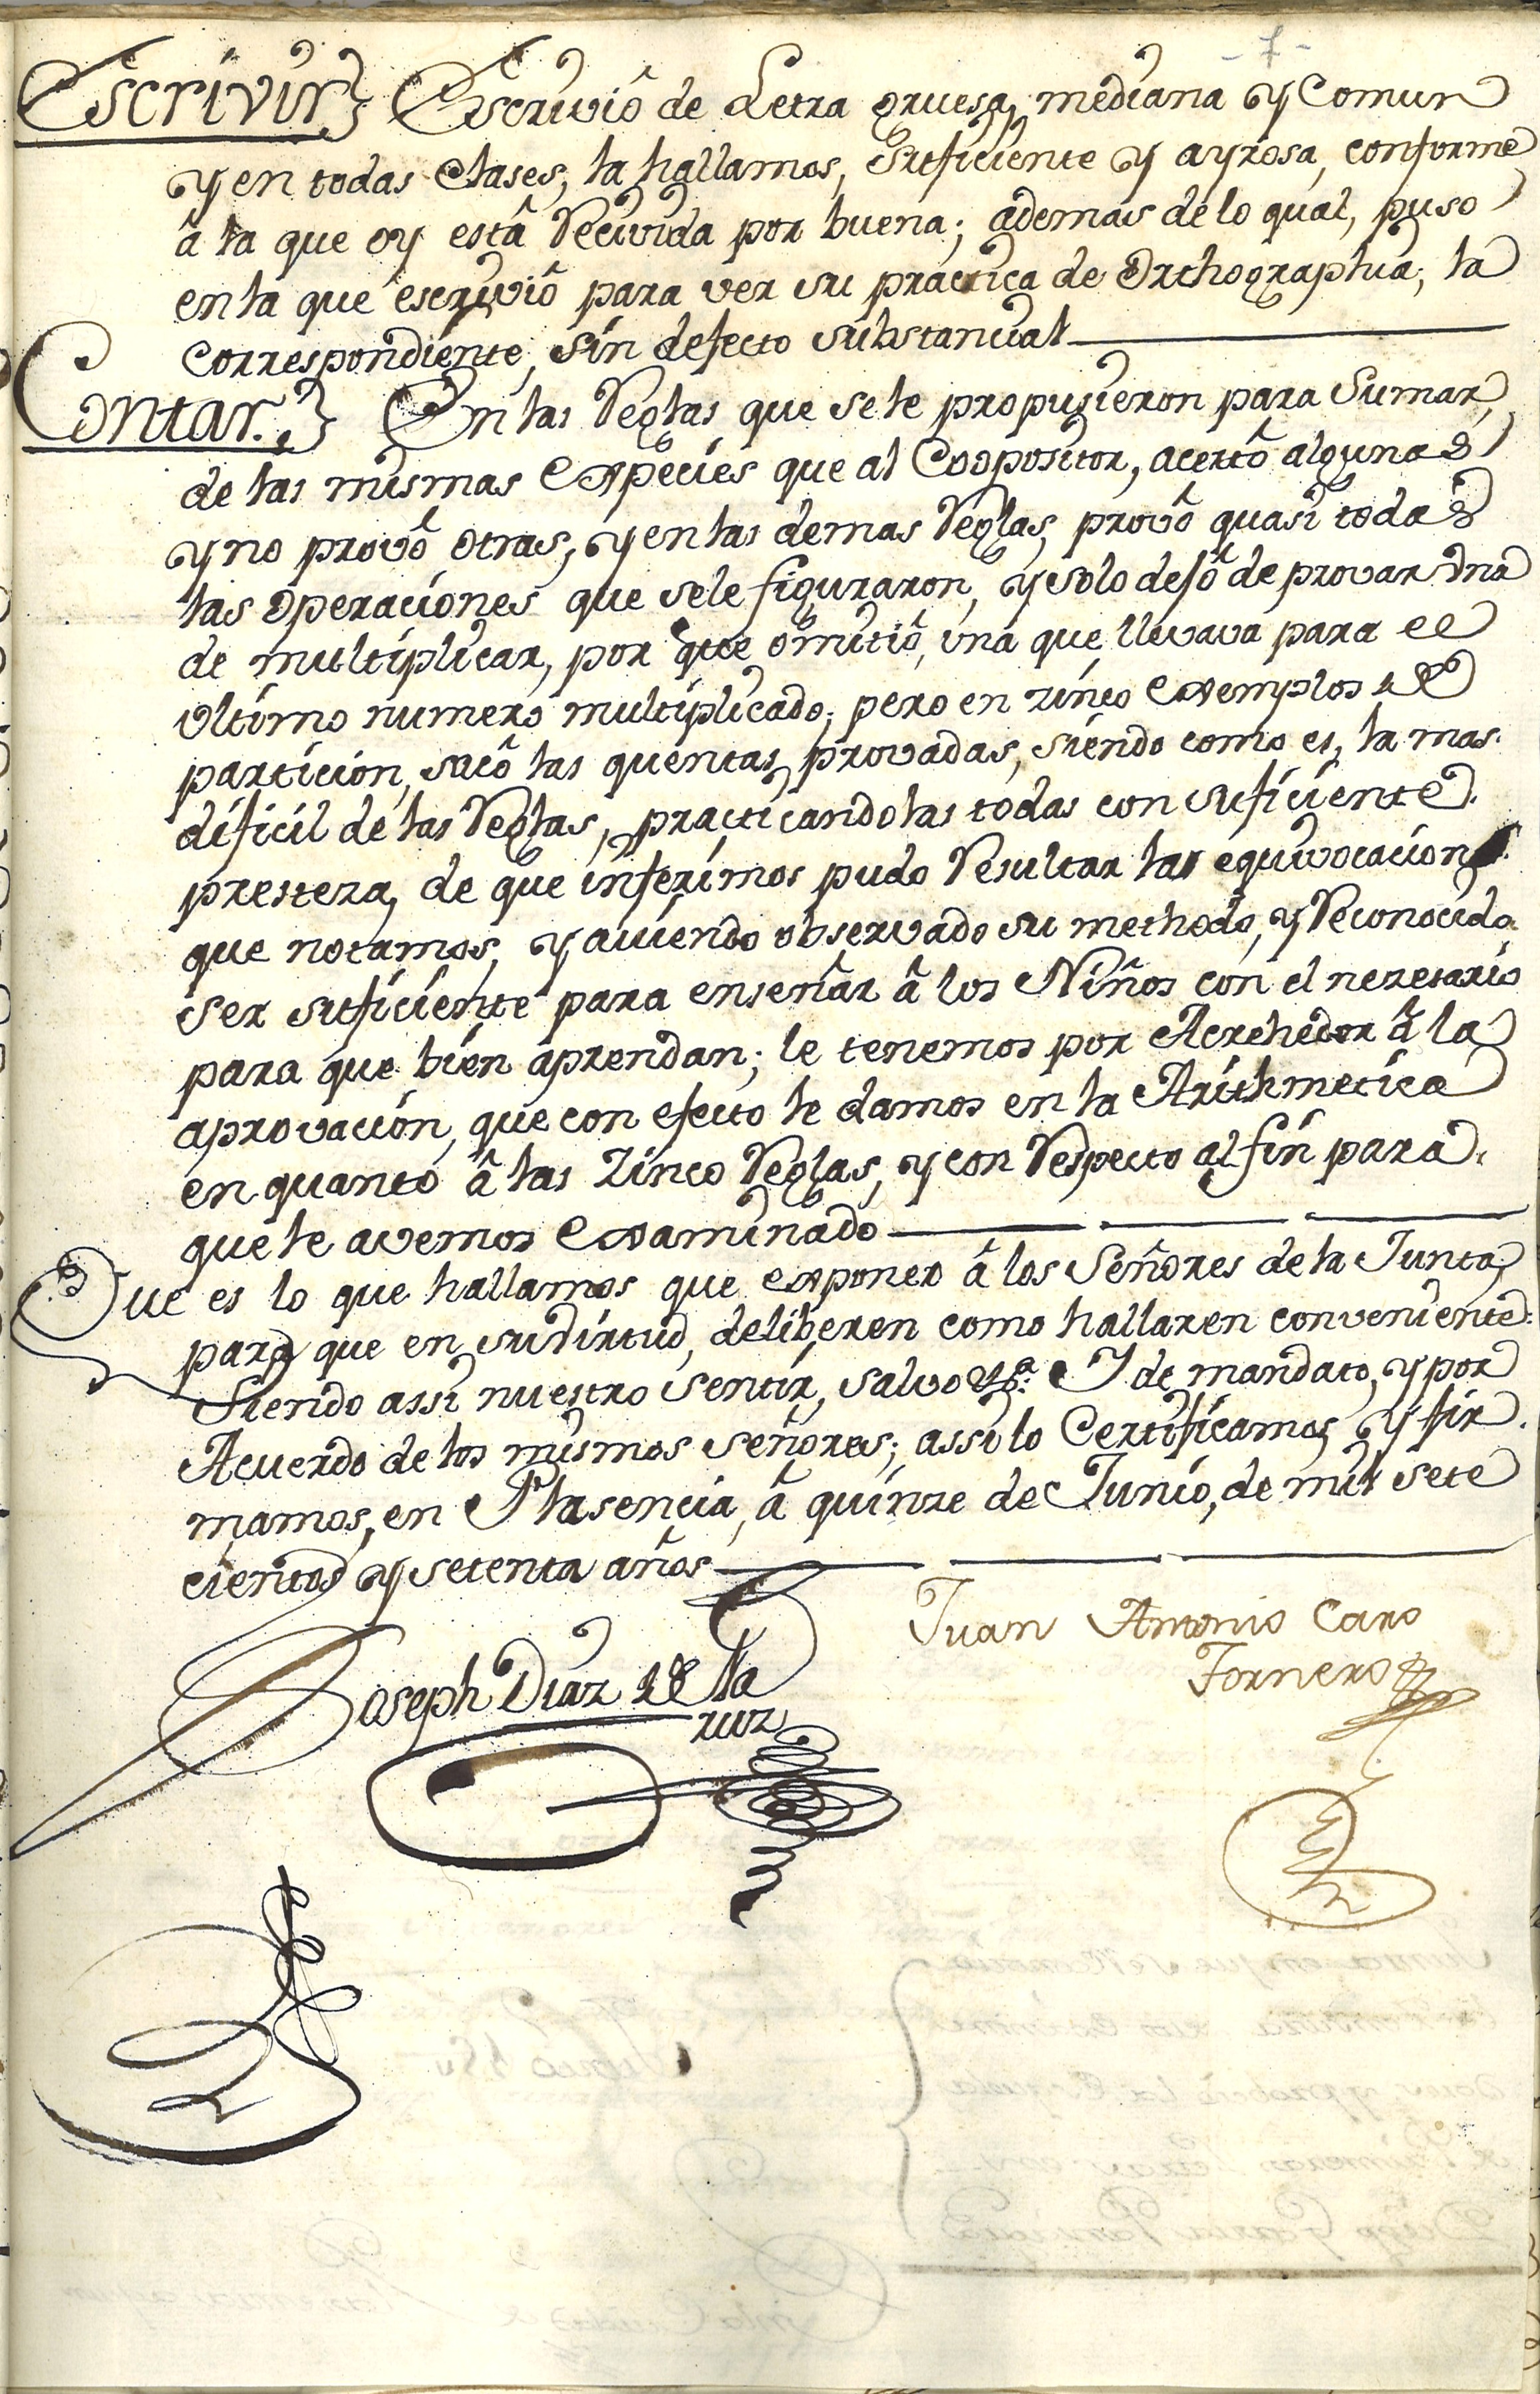 -7-
Escrivir} Escrivió de Letra gruesa, mediana y Comun
y en todas clases, la hallamos, suficiente y ayrosa, conforme
â la que oy está Recivida por buena; ademas de lo qual, puso
en la que escrivió para ver su practica de Orthographia, la
correspondiente, sin defecto substancial
Contar.} En las Reglas que se le propusieron para Sumar,
de las mismas Expecies que al Coopositor, acertô algunas
y no provô otras, y en las demas Reglas, provô quasi todas
las operaciones que se le figuraron, y solo dejô de provar una
de multiplicar, por que omitiô, una que llevava para el
ultimo numero multiplicado; pero en zinco exemplos de
particion, sacô las quentas provadas, siendo como es, la mas
dificil de las Reglas, practicandolas todas con suficiente
presteza, de que inferimos pudo Resultar las equivocacion
que notamos, y aviendo observado su methodo, y Reconocido
ser suficiente para enseñar â los Niños con el nezesario
para que bien aprendan; le tenemos por Acrehedor â la
aprovacion, que con efecto le damos en la Arithmetica
en quanto â las Zinco Reglas, y con Respecto al fin para
que le avemos Examinado
Que es lo que hallamos que exponer â los Señores de la Junta,
para que en su virtud, deliberen como hallaren conveniente.
Siendo assi nuestro sentir, salvo &. I de mandato, y por
Acuerdo de los mismos señores; assi lo Certificamos y fir
mamos, en Plasencia, â quinze de Junio, de mil sete
cientos y setenta años
Juan Antonio Caro
Fornero
Joseph Diaz de la